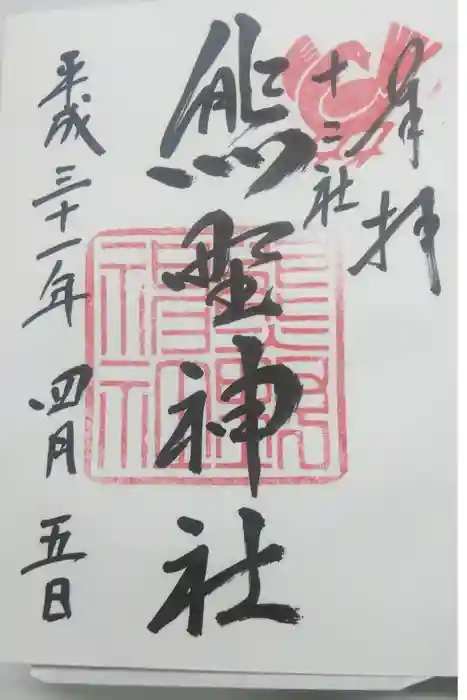 奉拝
十三社
熊野神社
平成三十一年 四月 五日
熊野神社